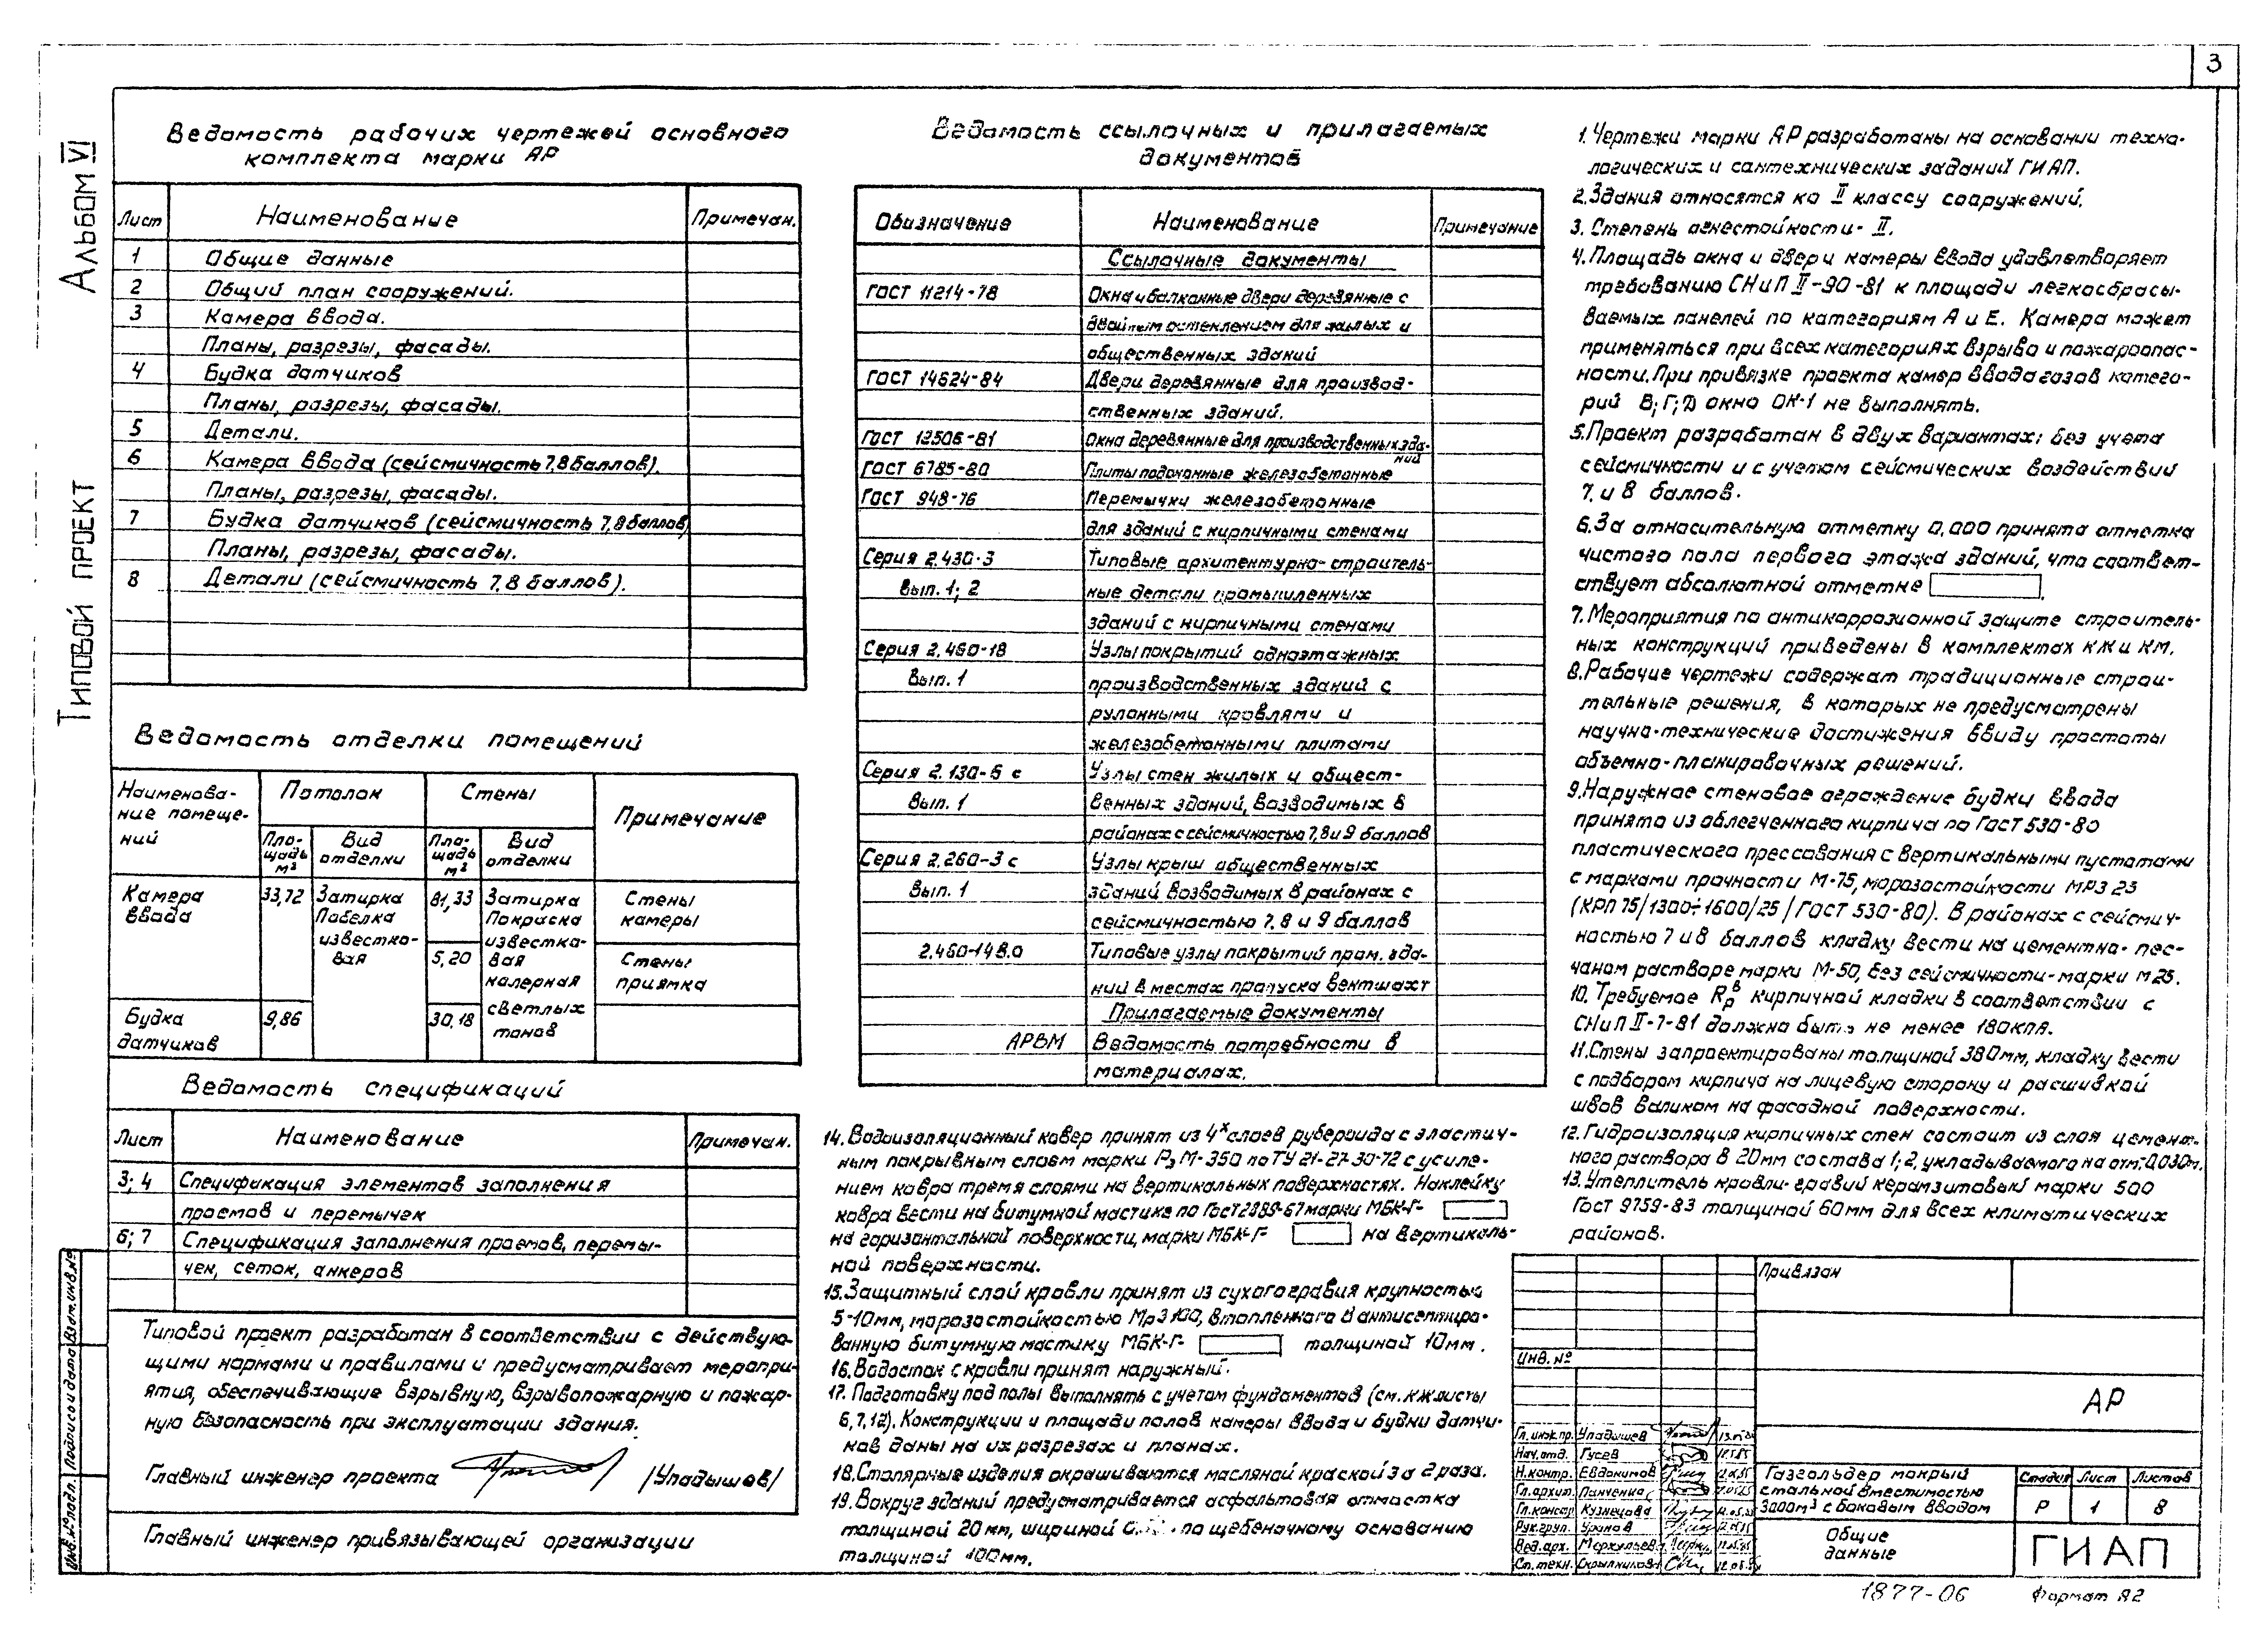 3
Альбом VI
Типовой проект
Ведомость рабочих чертежей основного
комплекта марки АР
Лист Наименование Примечан.
1 Общие данные
2 Общий план сооружений.
3 Камера ввода.
Планы, разрезы, фасады.
4 Будка датчиков
Планы, разрезы, фасады.
5 Детали.
6 Камера ввода (сейсмичность 7,8 баллов).
Планы, разрезы, фасады.
7 Будка датчиков (сейсмичность 7,8 баллов)
Планы, разрезы, фасады.
8 Детали (сейсмичность 7,8 баллов).
Ведомость отделки помещений
Наименова-
ние помеще-
ний
Потолок Стены Примечание
Пло-
щадь
м²
Вид
отделки
Пло-
щадь
м²
Вид
отделки
Камера
ввода
33,72 Затирка
Побелка
известко-
вая
81,33 Затирка
Покраска
известко-
вая
колерная
светлых
тонов
Стены
камеры
5,20 Стены
приямка
Будка
датчиков
9,86 30,18
Ведомость спецификаций
Лист Наименование Примечан.
3; 4 Спецификация элементов заполнения
проемов и перемычек
6; 7 Спецификация заполнения проемов, перемы-
чек, сеток, анкеров
Типовой проект разработан в соответствии с действую-
щими нормами и правилами и предусматривает меропри-
ятия, обеспечивающие взрывную, взрывопожарную и пожар-
ную безопасность при эксплуатации здания.
Главный инженер проекта /Уладышев/
Главный инженер привязывающей организации
Инв.№подл. Подпись и дата Взам.инв.№
Ведомость ссылочных и прилагаемых
документов
Обозначение Наименование Примечание
Ссылочные документы
ГОСТ 11214-78 Окна и балконные двери деревянные с
двойным остеклением для жилых и
общественных зданий
ГОСТ 14624-84 Двери деревянные для производ-
ственных зданий.
ГОСТ 12506-81 Окна деревянные для производственных зда-
ний
ГОСТ 6785-80 Плиты подоконные железобетонные
ГОСТ 948-76 Перемычки железобетонные
для зданий с кирпичными стенами
Серия 2.430-3 Типовые архитектурно-строитель-
Вып. 1; 2 ные детали промышленных
зданий с кирпичными стенами
Серия 2.460-18 Узлы покрытий одноэтажных
Вып. 1 производственных зданий с
рулонными кровлями и
железобетонными плитами
Серия 2.130-6 с Узлы стен жилых и общест-
Вып. 1 венных зданий, возводимых в
районах с сейсмичностью 7,8 и 9 баллов
Серия 2.260-3 с Узлы крыш общественных
Вып. 1 зданий возводимых в районах с
сейсмичностью 7, 8 и 9 баллов
2.460-14 В.0 Типовые узлы покрытий пром. зда-
ний в местах пропуска вентшахт
Прилагаемые документы
АРВМ Ведомость потребности в
материалах.
14. Водоизоляционный ковер принят из 4х слоев рубероида с эластич-
ным покрывным слоем марки РэМ-350 по ТУ 21-27-30-72 с усиле-
нием ковра тремя слоями на вертикальных поверхностях. Наклейку
ковра вести на битумной мастике по Гост 2889-67 марки МБК-Г-
на горизонтальной поверхности, марки МБК-Г- на вертикаль-
ной поверхности.
15. Защитный слой кровли принят из сухого гравия крупностью
5-10мм, морозостойкостью Мрз 100, втопленного в антисептиро-
ванную битумную мастику МБК-Г- толщиной 10мм.
16. Водосток с кровли принят наружный.
17. Подготовку под полы выполнять с учетом фундаментов (см. КЖ листы
6, 7, 12). Конструкции и площади полов камеры ввода и будки датчи-
ков даны на их разрезах и планах.
18. Столярные изделия окрашиваются масляной краской за 2 раза.
19. Вокруг зданий предусматривается асфальтовая отмостка
толщиной 20 мм, шириной по щебеночному основанию
толщиной 100мм.
1. Чертежи марки АР разработаны на основании техно-
логических и сантехнических заданий ГИАП.
2. Здания относятся ко II классу сооружений.
3. Степень огнестойкости - II.
4. Площадь окна и двери камеры ввода удовлетворяет
требованию СНиП II-90-81 к площади легкосбрасы-
ваемых панелей по категориям А и Е. Камера может
применяться при всех категориях взрыво и пожароопас-
ности. При привязке проекта камер ввода газов катего-
рий В; Г; Д окно ОК-1 не выполнять.
5. Проект разработан в двух вариантах: без учета
сейсмичности и с учетом сейсмических воздействий
7 и 8 баллов.
6. За относительную отметку 0,000 принята отметка
чистого пола первого этажа зданий, что соответ-
ствует абсолютной отметке .
7. Мероприятия по антикоррозионной защите строитель-
ных конструкций приведены в комплектах КЖ и КМ.
8. Рабочие чертежи содержат традиционные строи-
тельные решения, в которых не предусмотрены
научно-технические достижения ввиду простоты
объемно-планировочных решений.
9. Наружное стеновое ограждение будки ввода
принято из облегченного кирпича по Гост 530-80
пластического прессования с вертикальными пустотами
с марками прочности М-75, морозостойкости МРЗ 25
(КРП 75/1300÷1600/25/ГОСТ 530-80). В районах с сейсмич-
ностью 7 и 8 баллов кладку вести на цементно-пес-
чаном растворе марки М-50, без сейсмичности - марки М 25.
10. Требуемое Rрв кирпичной кладки в соответствии с
СНиП II-7-81 должно быть не менее 180кПа.
11. Стены запроектированы толщиной 380мм, кладку вести
с подбором кирпича на лицевую сторону и расшивкой
швов валиком на фасадной поверхности.
12. Гидроизоляция кирпичных стен состоит из слоя цемент-
ного раствора в 20мм состава 1:2, укладываемого на отм.-0,030м.
13. Утеплитель кровли - гравий керамзитовый марки 500
Гост 9759-83 толщиной 60мм для всех климатических
районов.
Привязан
Инв. №
АР
Гл. инж.пр. Уладышев
Нач. отд. Гусев
Н.контр. Евдокимов
Гл. архит. Панченко
Гл. констр. Кузнецова
Рук.груп.
Вед. арх. Меркульева
Ст. техн.
Газгольдер мокрый
стальной вместимостью
3000м³ с боковым вводом
Стадия Лист Листов
Р 1 8
Общие
данные
ГИАП
1877-06 Формат А2